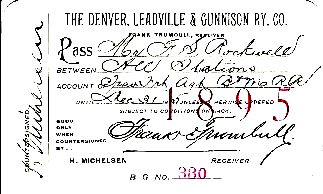 THE DENVER, LEADVILLE & GUNNISON RY. CO.
FRANK TRUMBULL, RECEIVER
Pass Mr F. S. Rockwell
BETWEEN All Stations
ACCOUNT Trav Frt Agt B & Mo R RR
UNTIL Dec 31 1895 UNLESS OTHERWISE ORDERED
SUBJECT TO CONDITIONS ON BACK.
GOOD
ONLY
WHEN
COUNTERSIGNED
BY
Frank Trumbull
H. MICHELSEN
RECEIVER
COUNTERSIGNED
H Michelsen
B G NO. 330